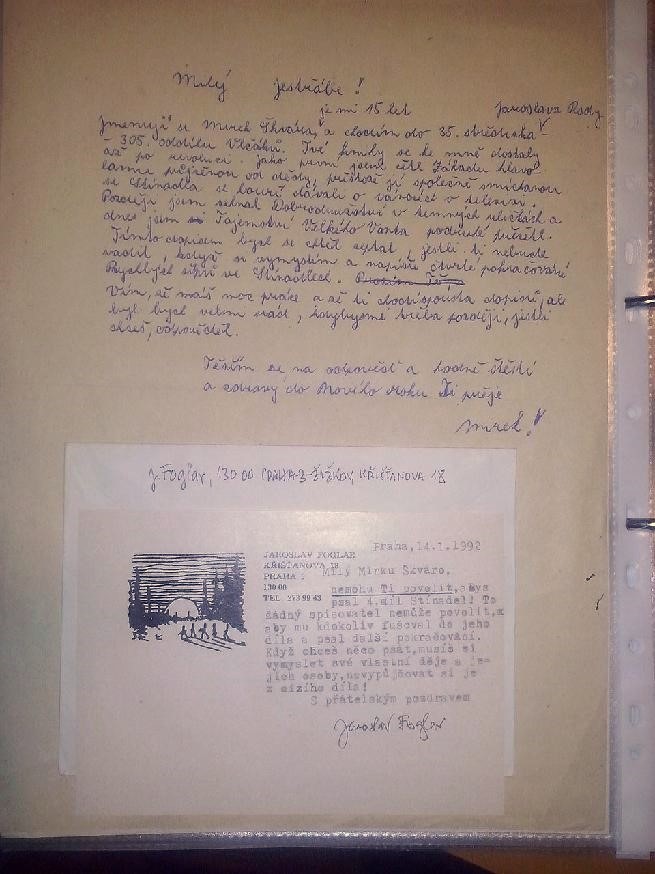 Milý Jestřábe!
je mi 15 let
Jaroslava Rady
Jmenuji se Mirek Škvára, a chodím do 35. střediska
– 305. oddílu Vlčáků. Tvé knihy se ke mně dostaly
až po revoluci. Jako první jsem četl Záhadu hlavo-
lamu půjčenou od dědy, později ji společně
se Stínadla se bouří dávali o vánocích v televizi.
Později jsem sehnal Dobrodružství v temných uličkách a
dnes jsem Tajemství Velkého Vonta podruhé přečetl.
Tímto dopisem bych se chtěl zeptat, jestli ti nebude
vadit, když si vymyslím a napíšu čtvrté pokračování
Rychlých šípů ve Stínadlech.
Vím, že máš moc práce a že ti chodí spousta dopisů, ale
byl bych velmi rád, kdybys mě třeba později, jestli
chceš, odpověděl.
Těším se na odpověď a hodně štěstí
a zdraví do Nového Roku Ti přeje
Mirek!
J. Foglar, 130 00 PRAHA 3-ŽIŽKOV, KŘIŠŤANOVA 18
Praha, 14.1.1992
JAROSLAV FOGLAR
KŘIŠŤANOVA 18
PRAHA 3
130 00
TEL. 273 99 43
Milý Mirku Škváro,
nemohu Ti povolit, abys
psal 4. díl Stínadel! To
žádný spisovatel nemůže povolit,
aby mu kdokoliv fušoval do jeho
díla a psal další pokračování.
Když chceš něco psát, musíš si
vymyslet své vlastní děje a je-
jich osoby, nevypůjčovat si je
z cizího díla!
S přátelským pozdravem
Jaroslav Foglar